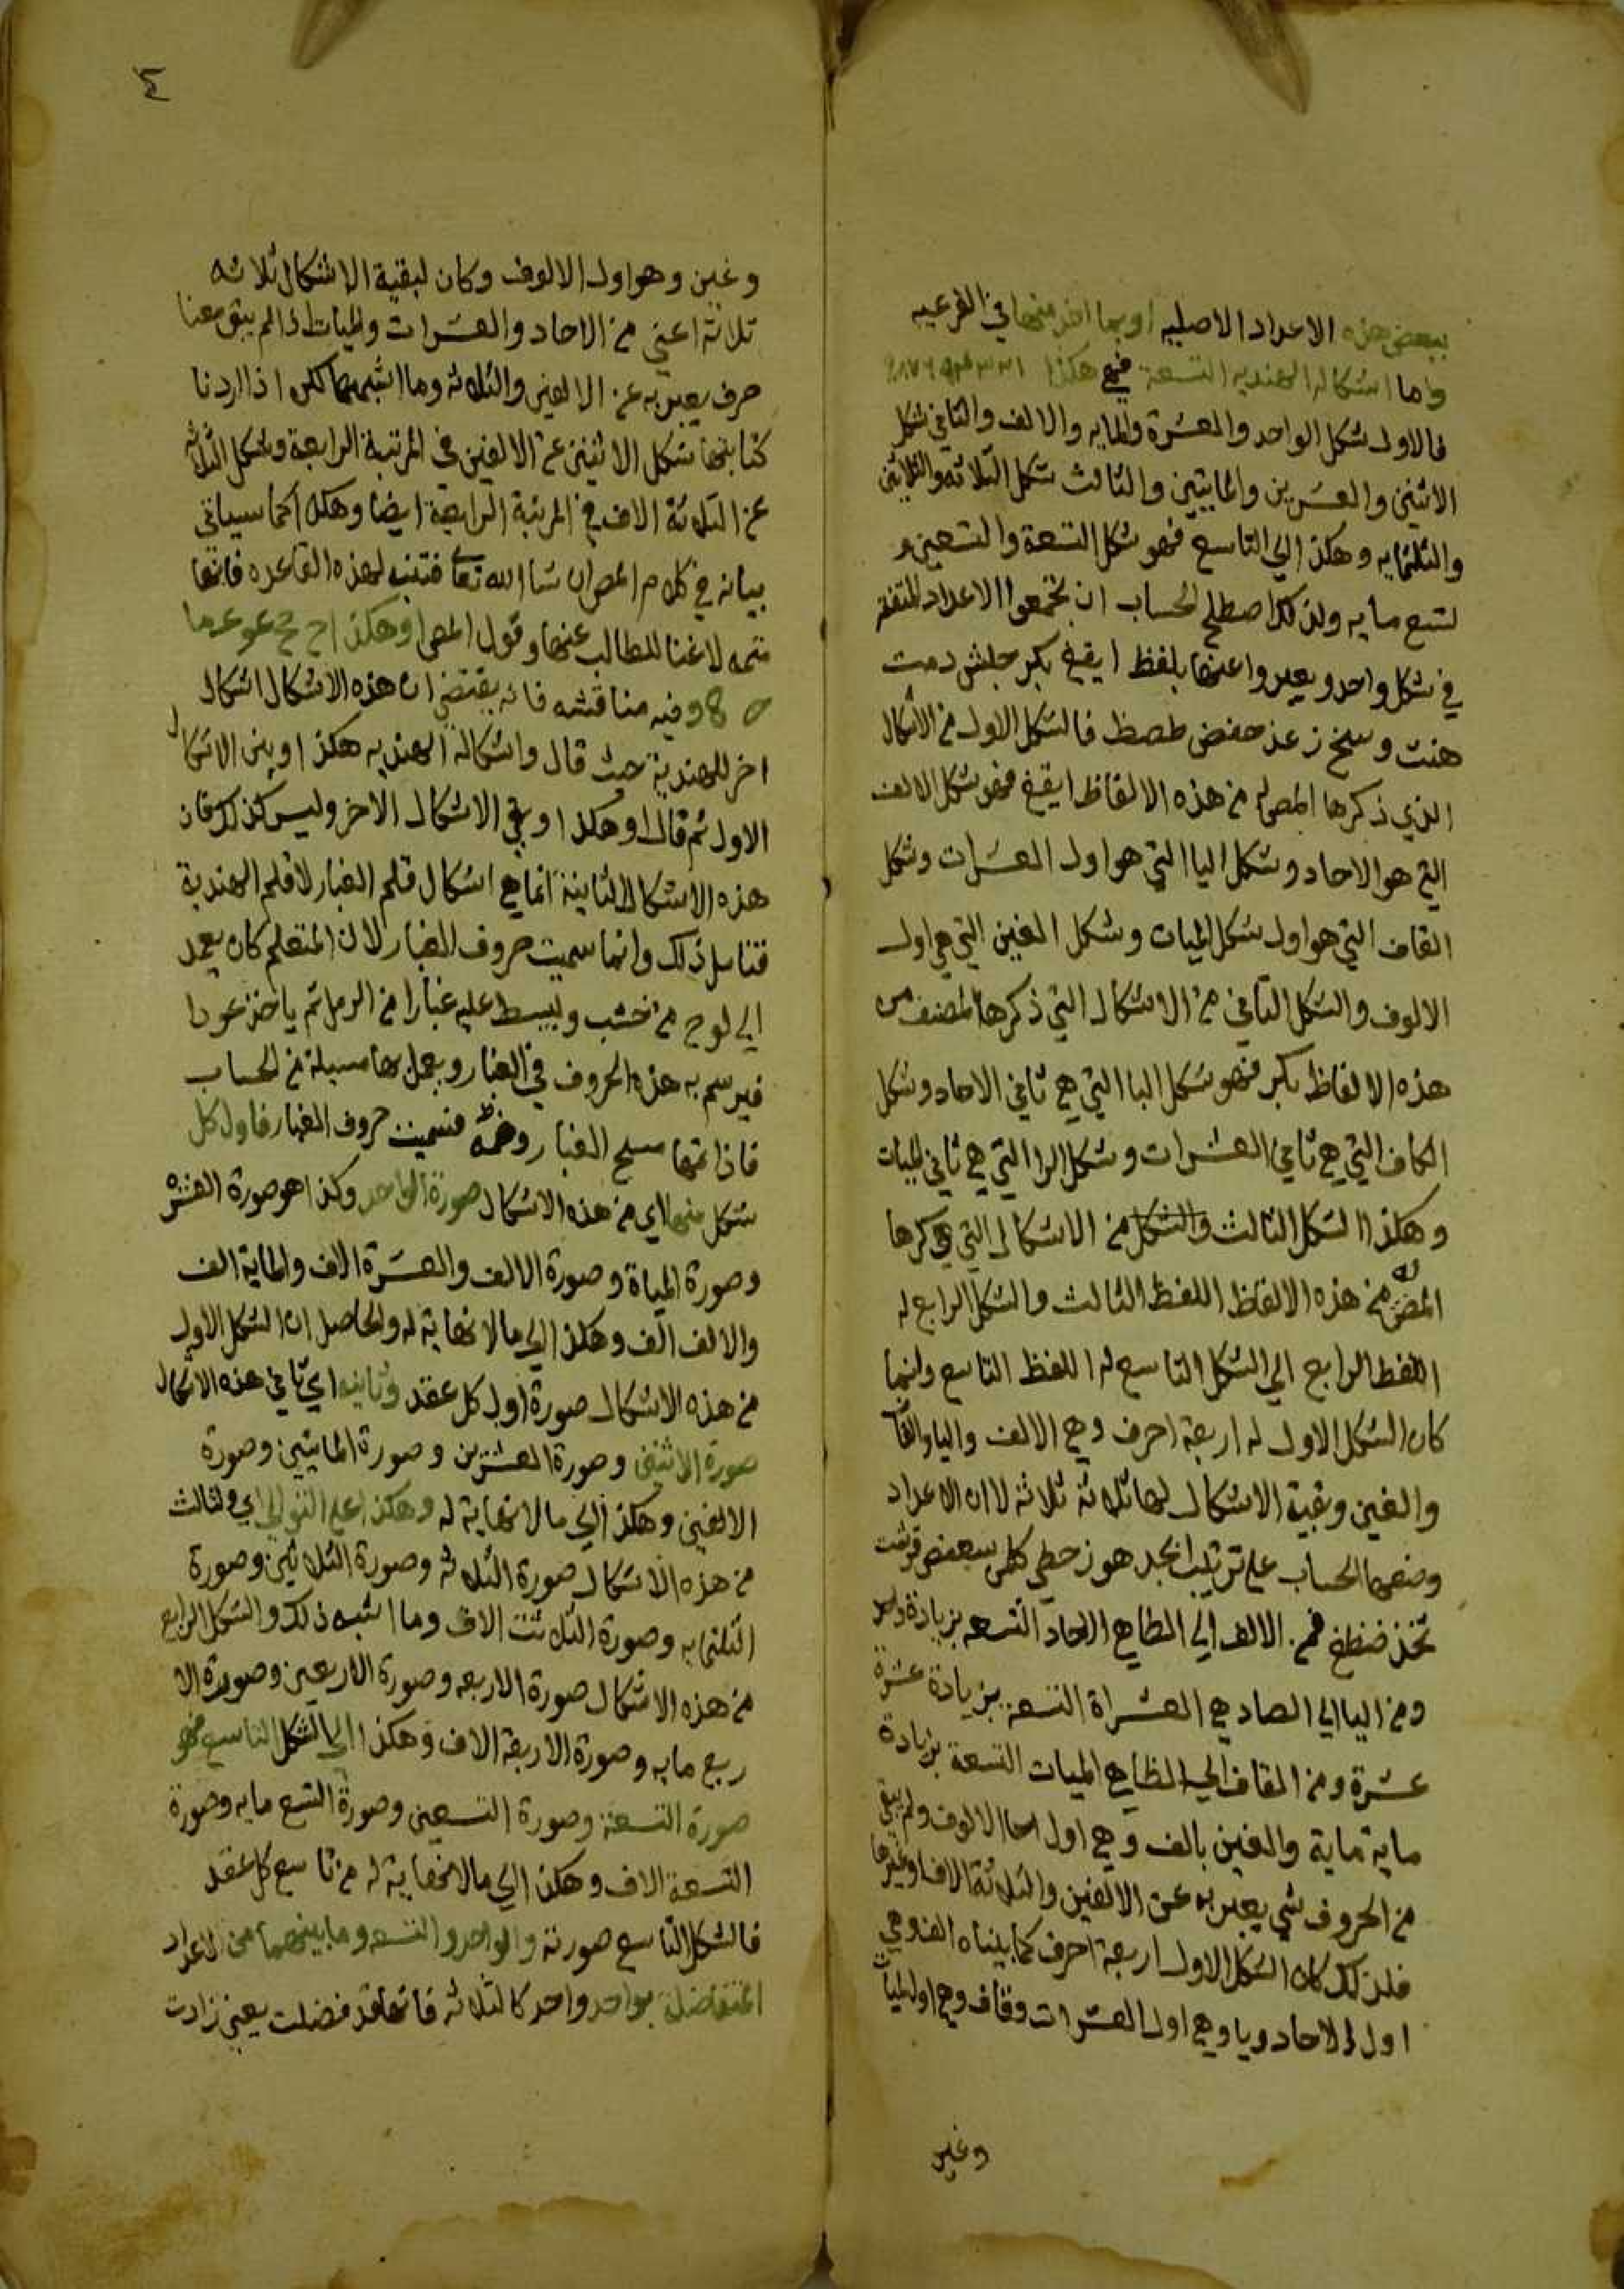 ببعض هذه الاعداد الاصليه او بما اخذ منها في الفرعيه
واما اشكاله الهنديه التسعة فهي هكذا
فالاول شكل الواحد والعشرة والمايه والالف والثاني شكل
الاثنين والعشرين والمايتين والثالث شكل الثلاثه والثلاثين
والثلثمايه وهكذا الي التاسع فهو شكل التسعة والتسعين و
لتسع مايه ولذلك اصطلح الحساب ان يجمعوا الاعداد المتفقة
في شكل واحد ويعبروا عنها بلفظ ايقغ بكر جلش دمت
هنث وسخ زعذ حفض طصظ فالشكل الاول من الاشكال
الذي ذكرها المص له من هذه الالفاظ ايقغ فهو شكل الالف
التي هو الاحاد وشكل اليا التي هو اول العشرات وشكل
القاف التي هو اول شكل الميات وشكل الغين التي هي اول
الالوف والشكل الثاني من الاشكال التي ذكرها المصنف من
هذه الالفاظ بكر فهو شكل البا التي هي ثاني الاحاد وشكل
الكاف التي هي ثاني العشرات وشكل الرا التي هي ثاني الميات
وهكذا الشكل الثالث والشكل من الاشكال التي ذكرها
المص له من هذه الالفاظ اللفظ الثالث والشكل الرابع له
اللفظ الرابع الي الشكل التاسع له اللفظ التاسع وانما
كان الشكل الاول له اربعة احرف وهي الالف واليا والقاف
والغين وبقية الاشكال لها ثلاثه ثلاثه لان الاعداد
وضعها الحساب علي ترتيب ابجد هوز حطي كلمن سعفص قرشت
ثخذ ضظغ فمن الالف الي الطا هي الاحاد التسعه بزيادة واحد
ومن اليا الي الصاد هي العشراة التسعة بزيادة عشرة
عشرة ومن القاف الي الظا هي الميات التسعة بزيادة
ماية ماية والغين بالف وهي اول احاد الالوف ولم يبق
من الحروف شي يعبر به عن الالفين والثلاثة الاف وغيرها
فلذلك كان الشكل الاول اربعة احرف كما بيناه الف وهي
اول الاحاد ويا وهي اول العشرات وقاف وهي اول الميات
وغين
٤
وغين وهو اول الالوف وكان لبقية الاشكال ثلاثه
ثلاثة اعني من الاحاد والعشرات والميات اذ لم يبق معنا
حرف يعبر به عن الالفين والثلاثه وما اشبههما لكن اذا اردنا
كتابتها شكل الاثنين عن الالفين في المرتبة الرابعة وشكل الثلاثه
عن الثلاثة الاف في المرتبة الرابعة ايضا وهكذا كما سياتي
بيانه في كلام المص ان شا الله تعالي فتنبه لهذه القاعده فانها
متمه لا غنا للطالب عنها وقول المص او هكذا
وفيه مناقشه فانه يقتضي ان هذه الاشكال اشكال
اخر للهندية حيث قال واشكاله الهنديه هكذا وبين الاشكال
الاول ثم قال او هكذا وبقي الاشكال الاخر وليس كذلك فان
هذه الاشكال الثانية انما هي اشكال قلم الغبار لا قلم الهندية
فتامل ذلك وانما سميت حروف الغبار لان المتعلم كان يعمد
الي لوح من خشب ويبسط عليه غبارا من الرمل ثم ياخذ عودا
فيرسم به هذه الحروف في الغبار ويعمل بها مسيلة من الحساب
فاذا تمها مسح الغبار فسميت حروف الغبار فاول كل
شكل منها اي من هذه الاشكال صورة الواحد وكذا هو صورة العشره
وصورة المياة وصورة الالف والعشرة الاف والماية الف
والالف الف وهكذا الي مالا نهاية له والحاصل ان الشكل الاول
من هذه الاشكال صورة اول كل عقد وثانيه اي ثاني هذه الاشكال
صورة الاثنين وصورة العشرين وصورة المايتين وصورة
الالفين وهكذا الي مالا نهاية له وهكذا علي التوالي اي والثالث
من هذه الاشكال صورة الثلاثه وصورة الثلاثين وصورة
الثلثمايه وصورة الثلاثت الاف وما اشبه ذلك والشكل الرابع
من هذه الاشكال صورة الاربعه وصورة الاربعين وصورة الا
ربع مايه وصورة الاربعة الاف وهكذا الي الشكل التاسع فهو
صورة التسعة وصورة التسعين وصورة التسع مايه وصورة
التسعة الاف وهكذا الي مالا نهاية له من تاسع كل عقد
فالشكل التاسع صورته والواحد والتسعه وما بينهما من الاعداد
المتفاضلة بواحد واحد كالثلاثه فانها قد فضلت يعني زادت